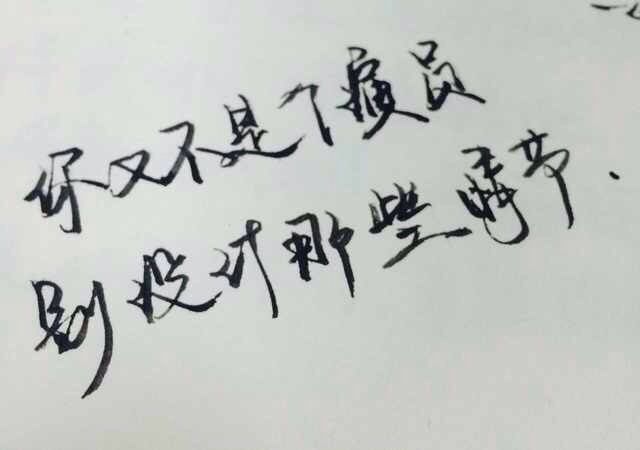 你又不是个演员
别设计那些情节.